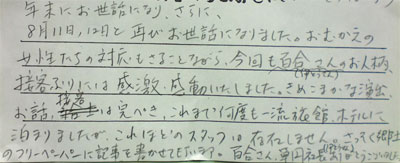 年末にお世話になり、さらに、
8月11日,12日と再びお世話になりました。おむかえの
女性たちの対応もさることながら、今回も百合さんのお人柄、
接客ぶりには感激、感動いたしました。きめこまかな演出
お話、接客は完ぺき、これまで何度も一流旅館、ホテルに
泊まりましたが、これほどのスタッフは存在しません。さっそく
のフリーペーパーに記事を書かせて 百合さん、